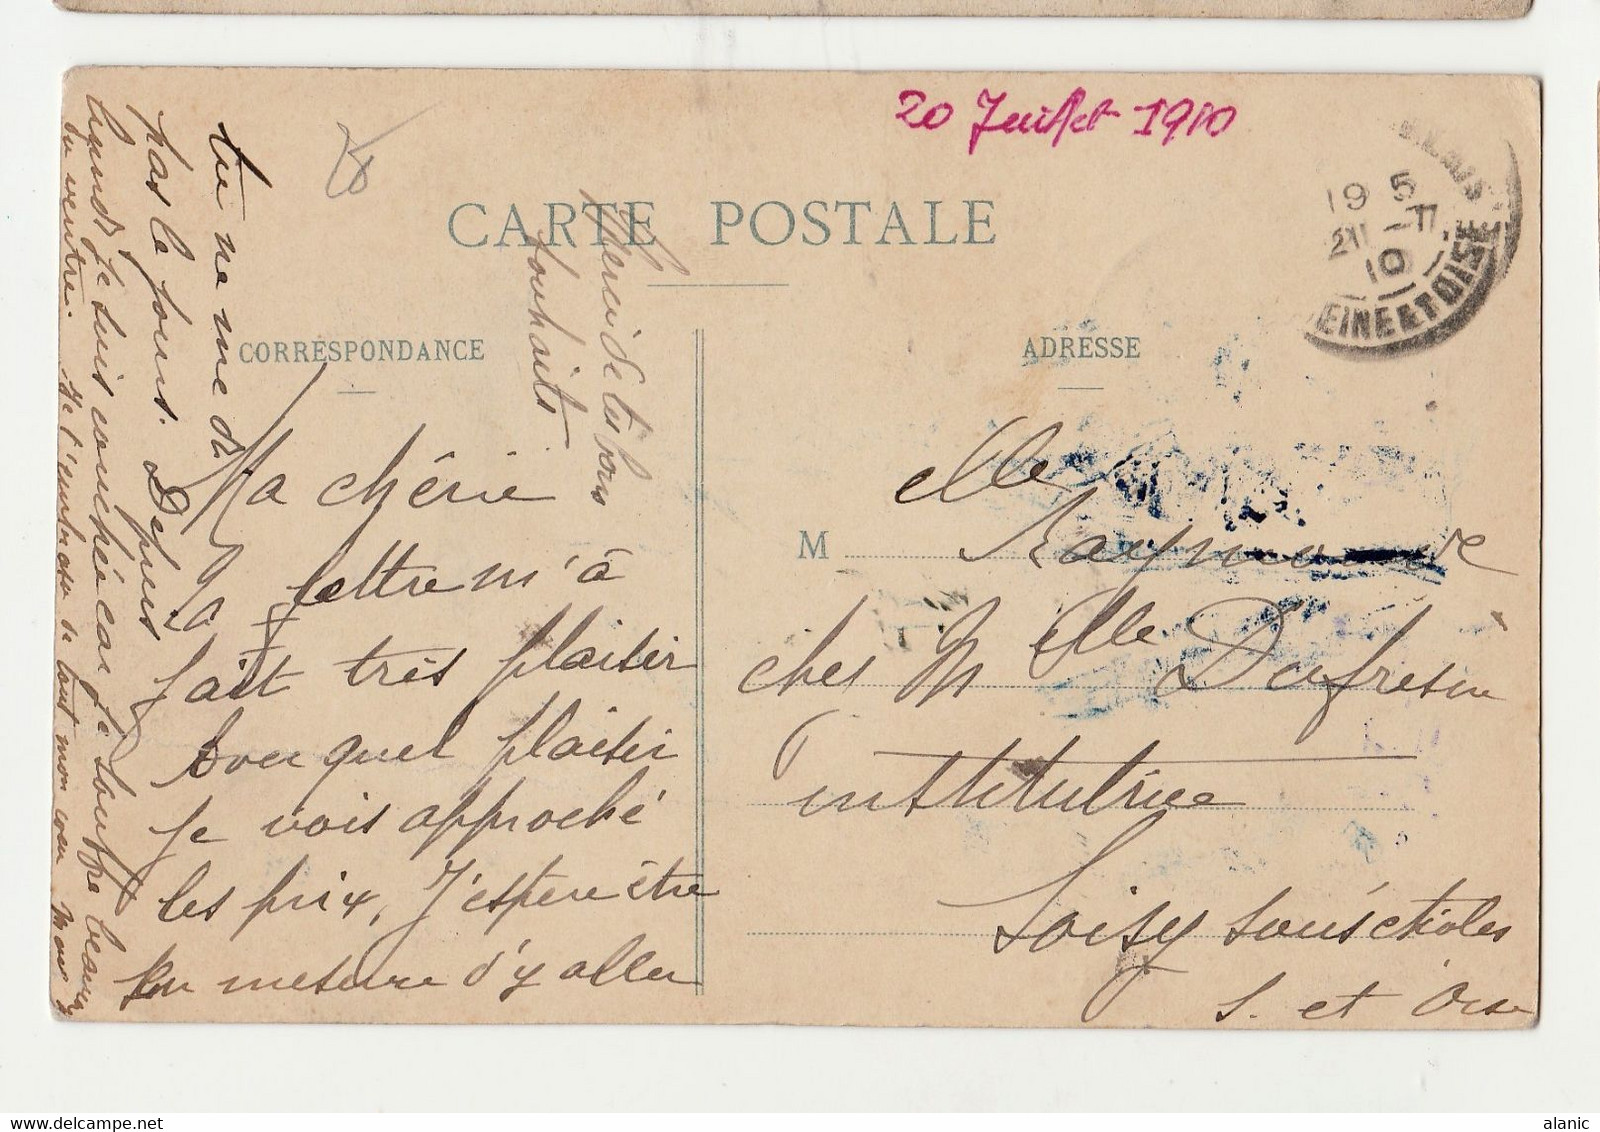 20 Juillet 1910
CARTE POSTALE
CORRESPONDANCE
ADRESSE
19 5
10
EINE & T OISE
Ma chérie
Ta lettre m'à
fait très plaisir
Avec quel plaisir
je vois approché
les prix, J'espere être
en mesure d'y aller
tu ne me di
pas le jour. Depuis
lundi je suis couchée car je souffre beaucoup
du ventre. Je t'embrasse de tout mon cœur
Merci de tes bons
souhaits
M elle Raymonde
ches Melle Dufresne
institutrice
Soisy sous etioles
S. et Oise
alanic
delcampe.net